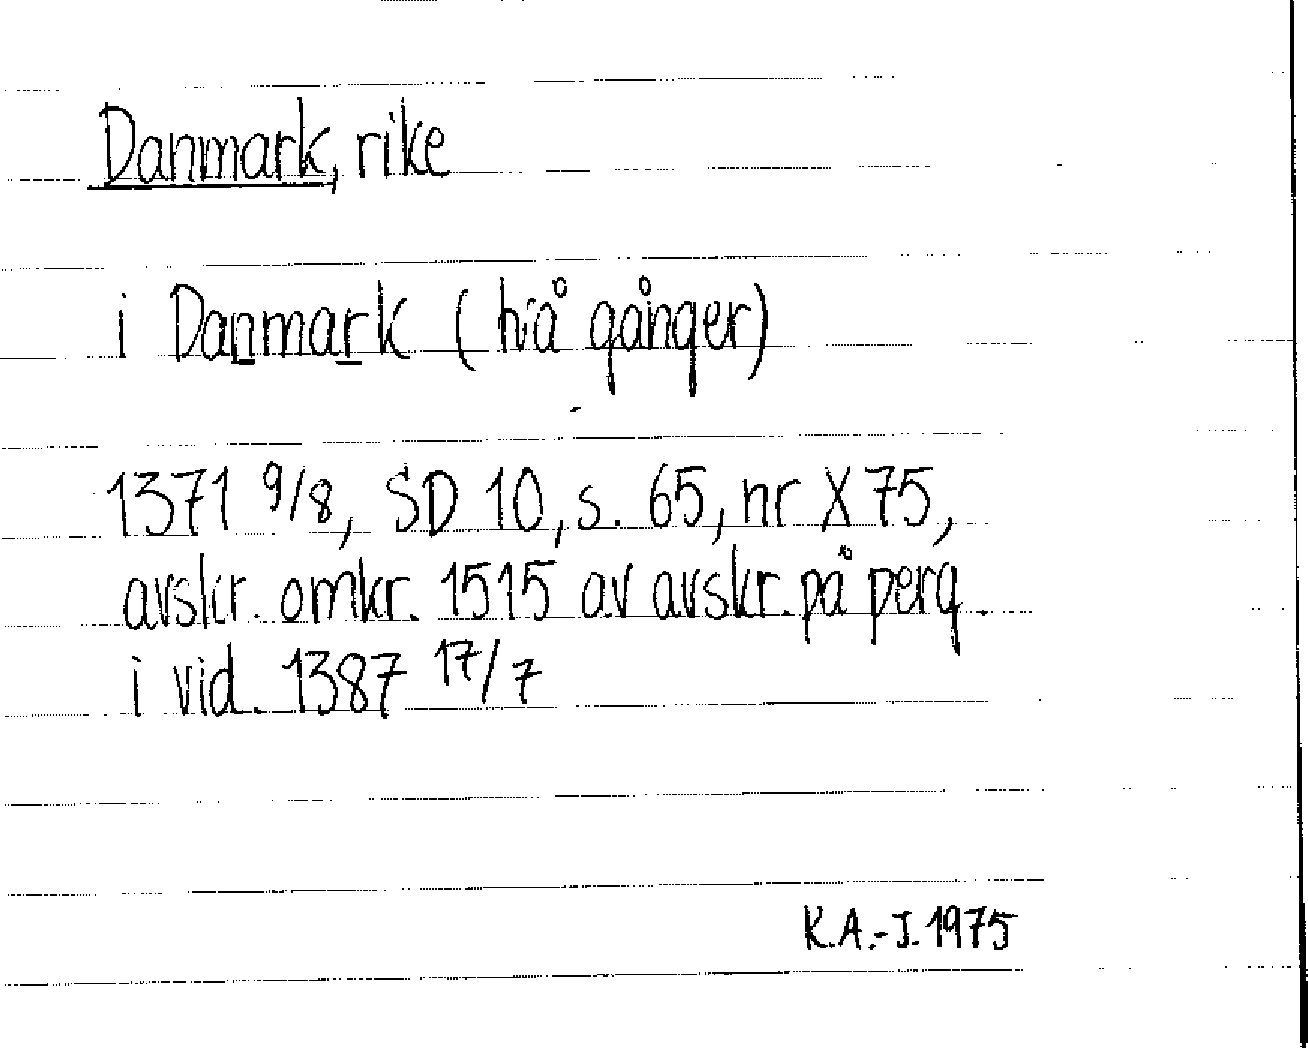 Danmark, rike
i Danmark (två gånger)
1371 9/8, SD 10, s. 65, nr X 75,
avskr. omkr. 1515 av avskr. på perg.
i vid. 1387 17/7
K.A.-J. 1975